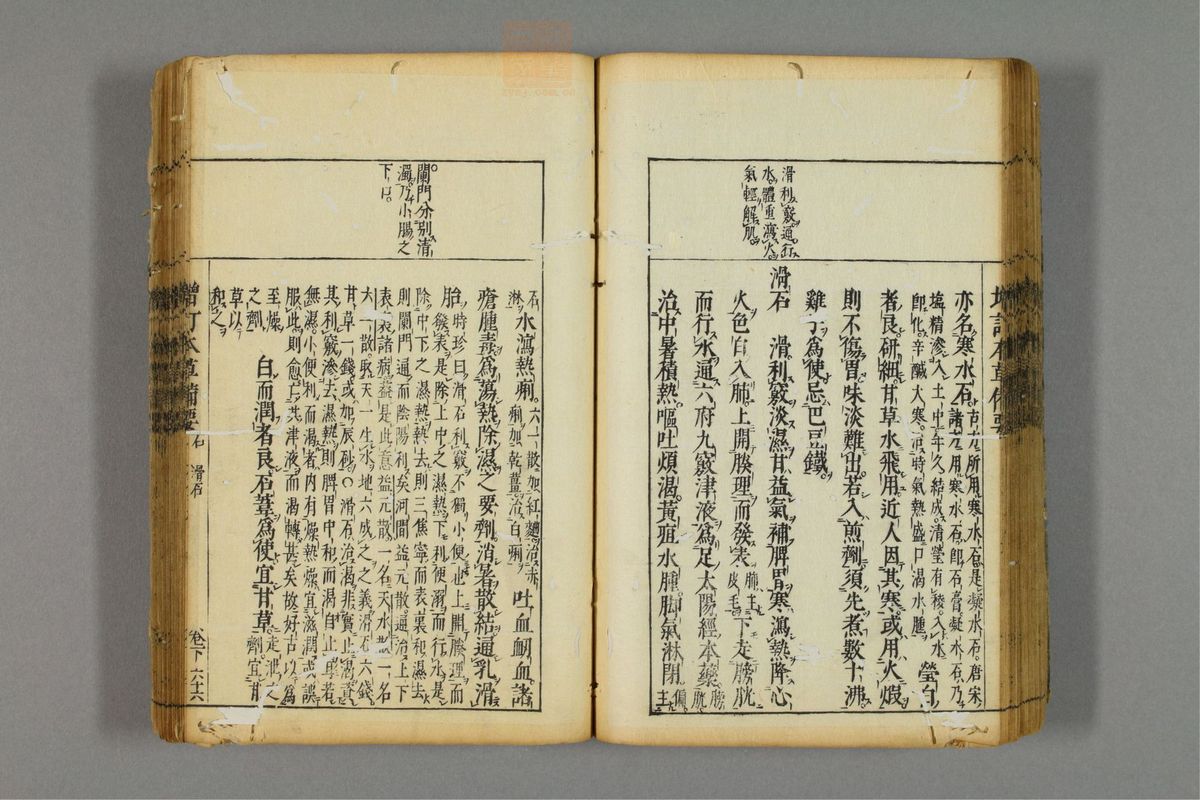 滑利竅通行
水體重瀉火
氣輕解肌
亦名寒水石
古方所用寒水石是凝水石唐宋
諸方用寒水石即石膏凝水石乃
塩精滲入土中年久結成清瑩有稜入水
即化辛鹹大寒治時氣熱盛口渴水腫
瑩白
者良研細甘草水飛用近人因其寒或用火煅
則不傷胃味淡難出若入煎劑須先煮數十沸
雞子為使忌巴豆鐵
滑石 滑利竅淡濕甘益氣補脾胃寒瀉熱降心
火色白入肺上開腠理而發表
肺主
皮毛
下走膀胱
而行水通六府九竅津液為足太陽經本藥
膀
胱
治中暑積熱嘔吐煩渴黃疸水腫脚氣淋閉
偏
主
闌門分別清
濁乃小腸之
下口
石
淋
水瀉熱痢
六一散加紅麯治赤
痢加乾薑治白痢
吐血衂血諸
瘡腫毒為蕩熱除濕之要劑消暑散結通乳滑
胎
時珍曰滑石利竅不獨小便也上開腠理而
發表是除上中之濕熱下利便溺而行水是
除中下之濕熱熱去則三焦寧而表裏和濕去
則闌門通而陰陽利矣河間益元散通治上下
表裏諸病蓋是此意益元散一名天水散一名
六一散取天一生水地六成之之義滑石六錢
甘草一錢或加辰砂○滑石治渴非實止渴資
其利竅滲去濕熱則脾胃中和而渴自止耳若
無濕小便利而渴者內有燥熱燥宜滋潤或誤
服此則愈亡其津液而渴轉甚矣故好古以為
至燥
之劑
白而潤者良石葦為使宜甘草
走泄之
劑宜甘
草以
和之
增訂本草備要
石 滑石
卷下 六十六